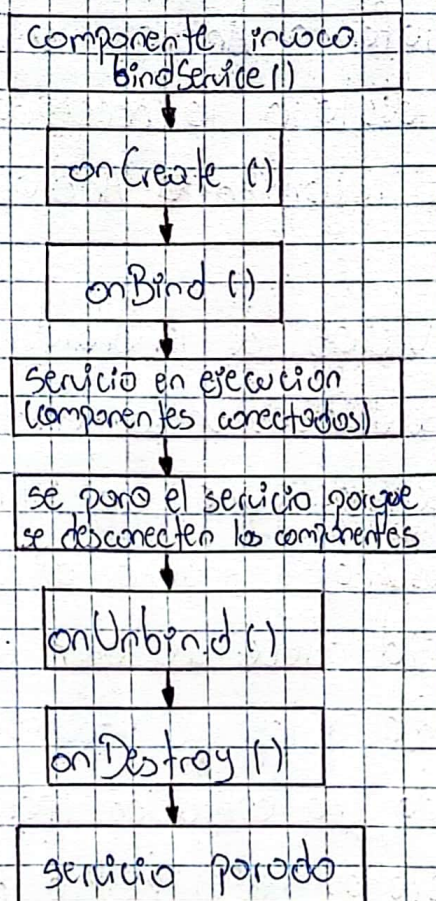 componente invoca
bindService()
onCreate ()
onBind ()
servicio en ejecucion
(componentes conectados)
se para el servicio porque
se desconecten los componentes
onUnbind ()
onDestroy ()
servicio parado